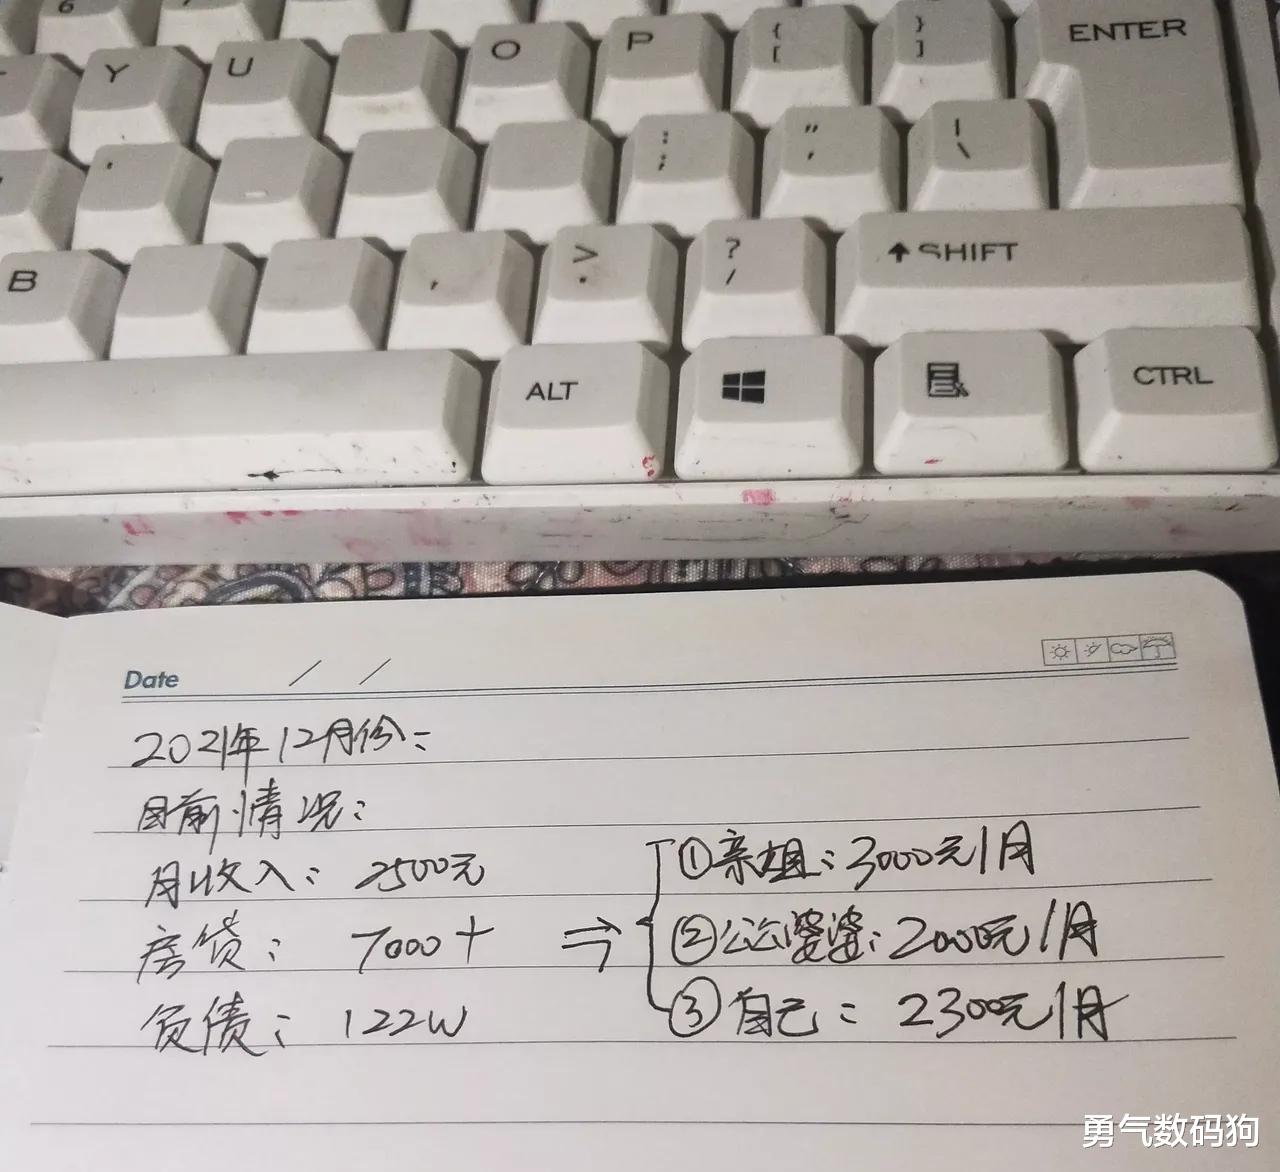 6
Y U O P { [ } ] ENTER
: ; " , | \
B , > . ? / SHIFT
ALT CTRL
Date / /
2021年12月份:
目前情况:
月收入: 2500元
房贷: 7000+ ⇒
负债: 122W
①亲姐: 3000元/月
②公公婆婆: 2000元/月
③自己: 2300元/月
勇气数码狗